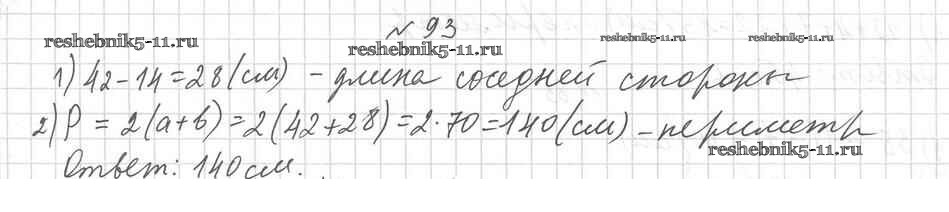 № 93
reshebnik5-11.ru
reshebnik5-11.ru
reshebnik5-11.ru
reshebnik5-11.ru
1) 42-14=28(см) - длина соседней стороны
2) P = 2(a+b)=2(42+28)=2·70=140(см) - периметр
reshebnik5-11.ru
Ответ: 140 см.